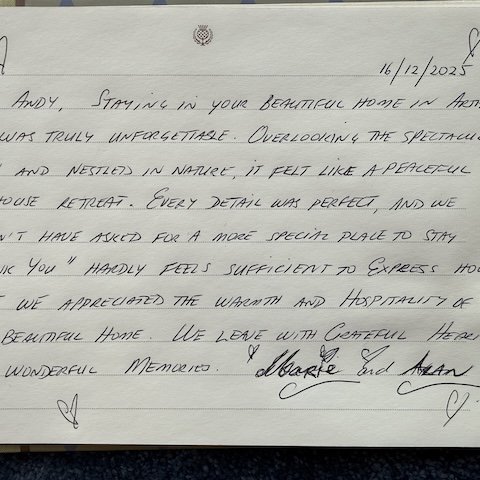 16/12/2025
ANDY, STAYING IN YOUR BEAUTIFUL HOME IN
WAS TRULY UNFORGETTABLE. OVERLOOKING THE
AND NESTLED IN NATURE, IT FELT LIKE A PEACEFUL
RETREAT. EVERY DETAIL WAS PERFECT, AND WE
HAVE ASKED FOR A MORE SPECIAL PLACE TO STAY
YOU" HARDLY FEELS SUFFICIENT TO EXPRESS
WE APPRECIATED THE WARMTH AND HOSPITALITY OF
BEAUTIFUL HOME. WE LEAVE WITH GRATEFUL
WONDERFUL MEMORIES. Marie and ALAN